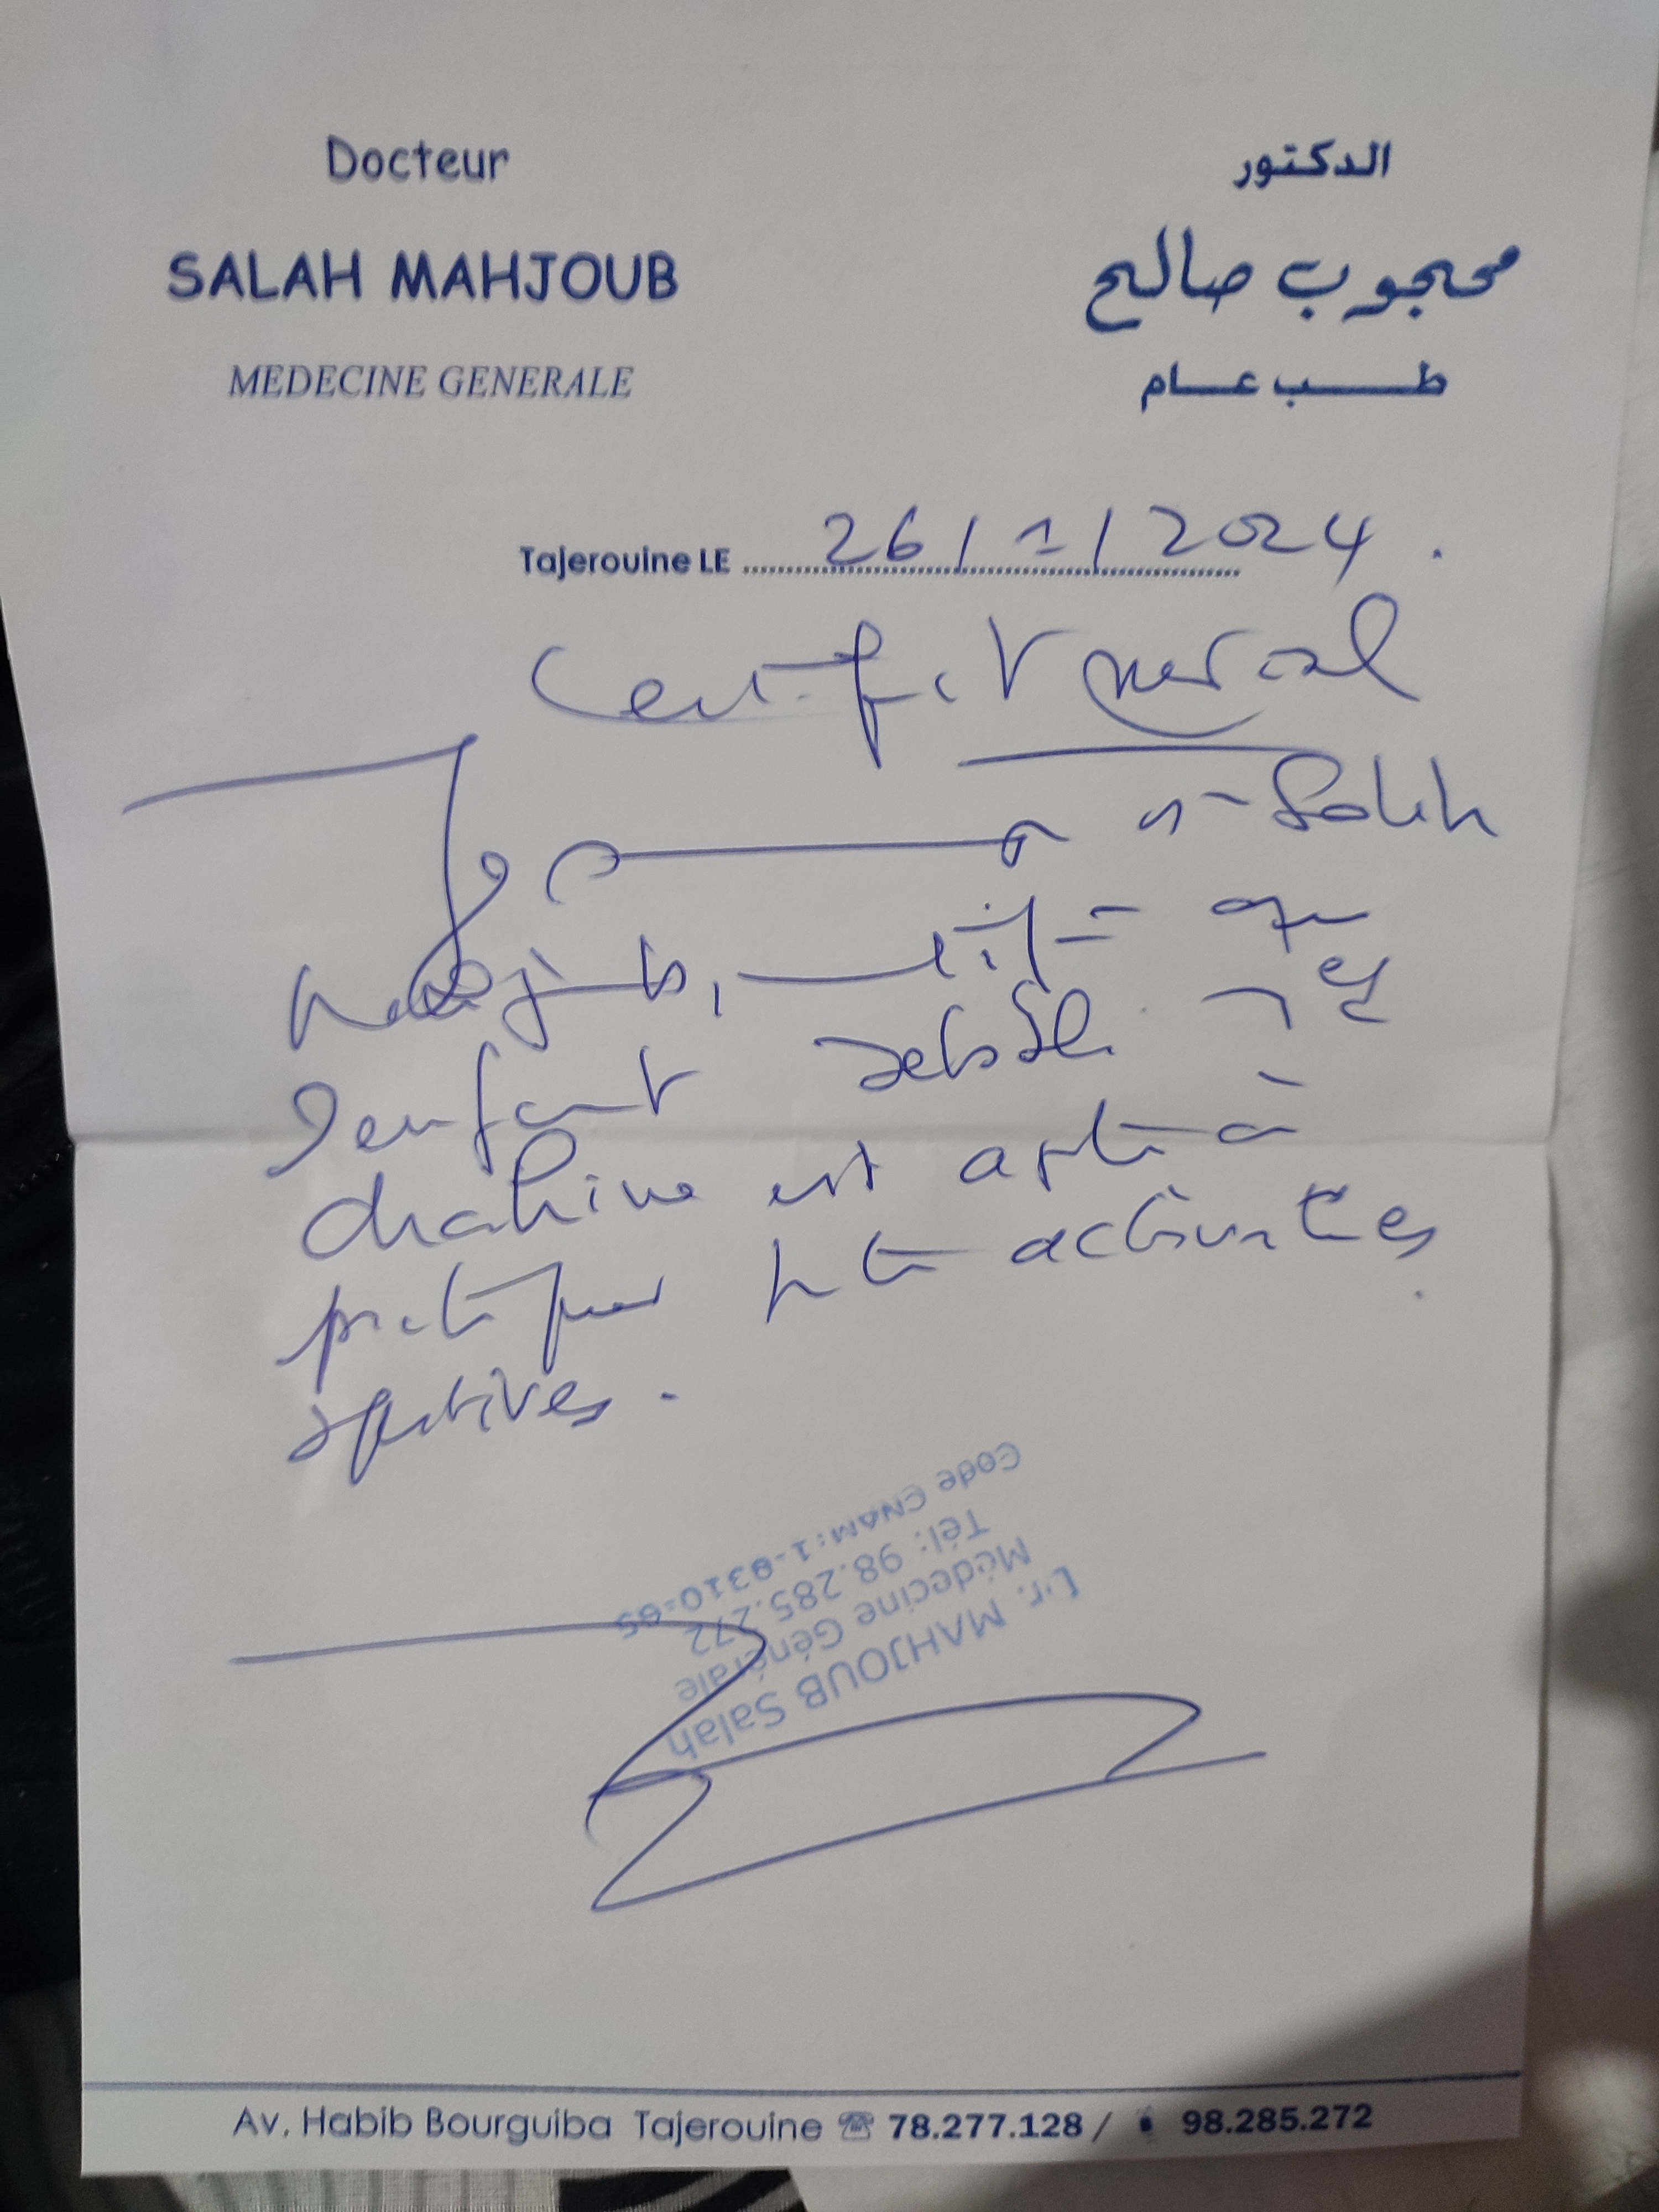 Docteur
SALAH MAHJOUB
MEDECINE GENERALE
الدكتور
محجوب صالح
طب عام
Tajerouine LE 26/1/2024.
Certificat medical
Je Salah
Mahjoub, certifie que
l'enfant
chahine est apte à
pratiquer les activités
sportives.
Dr. MAHJOUB Salah
Médecine Générale
Tél: 98.285.272
Code CNAM: 1-9310-65
Av. Habib Bourguiba Tajerouine ☎ 78.277.128 / 98.285.272